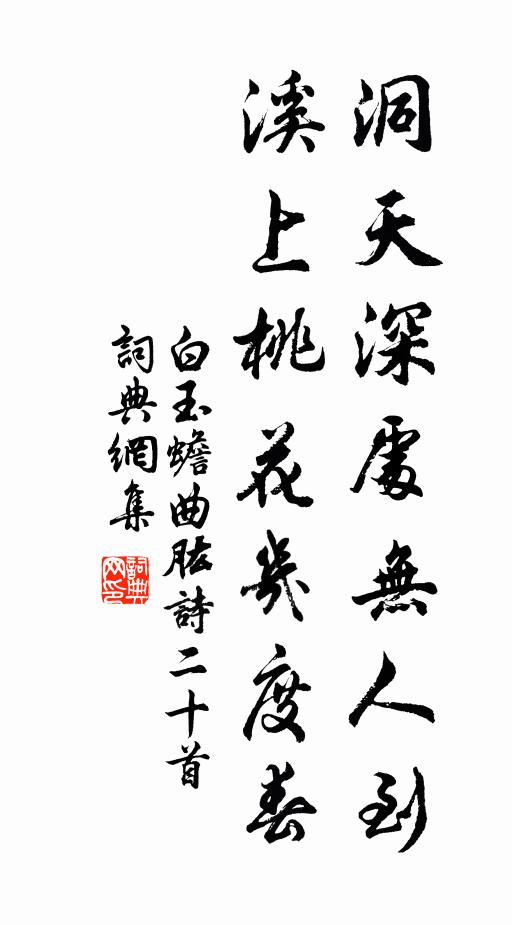 洞天深處無人到
溪上桃花幾度春
白玉蟾曲肱詩二十首
詞典網集
詞典
网印